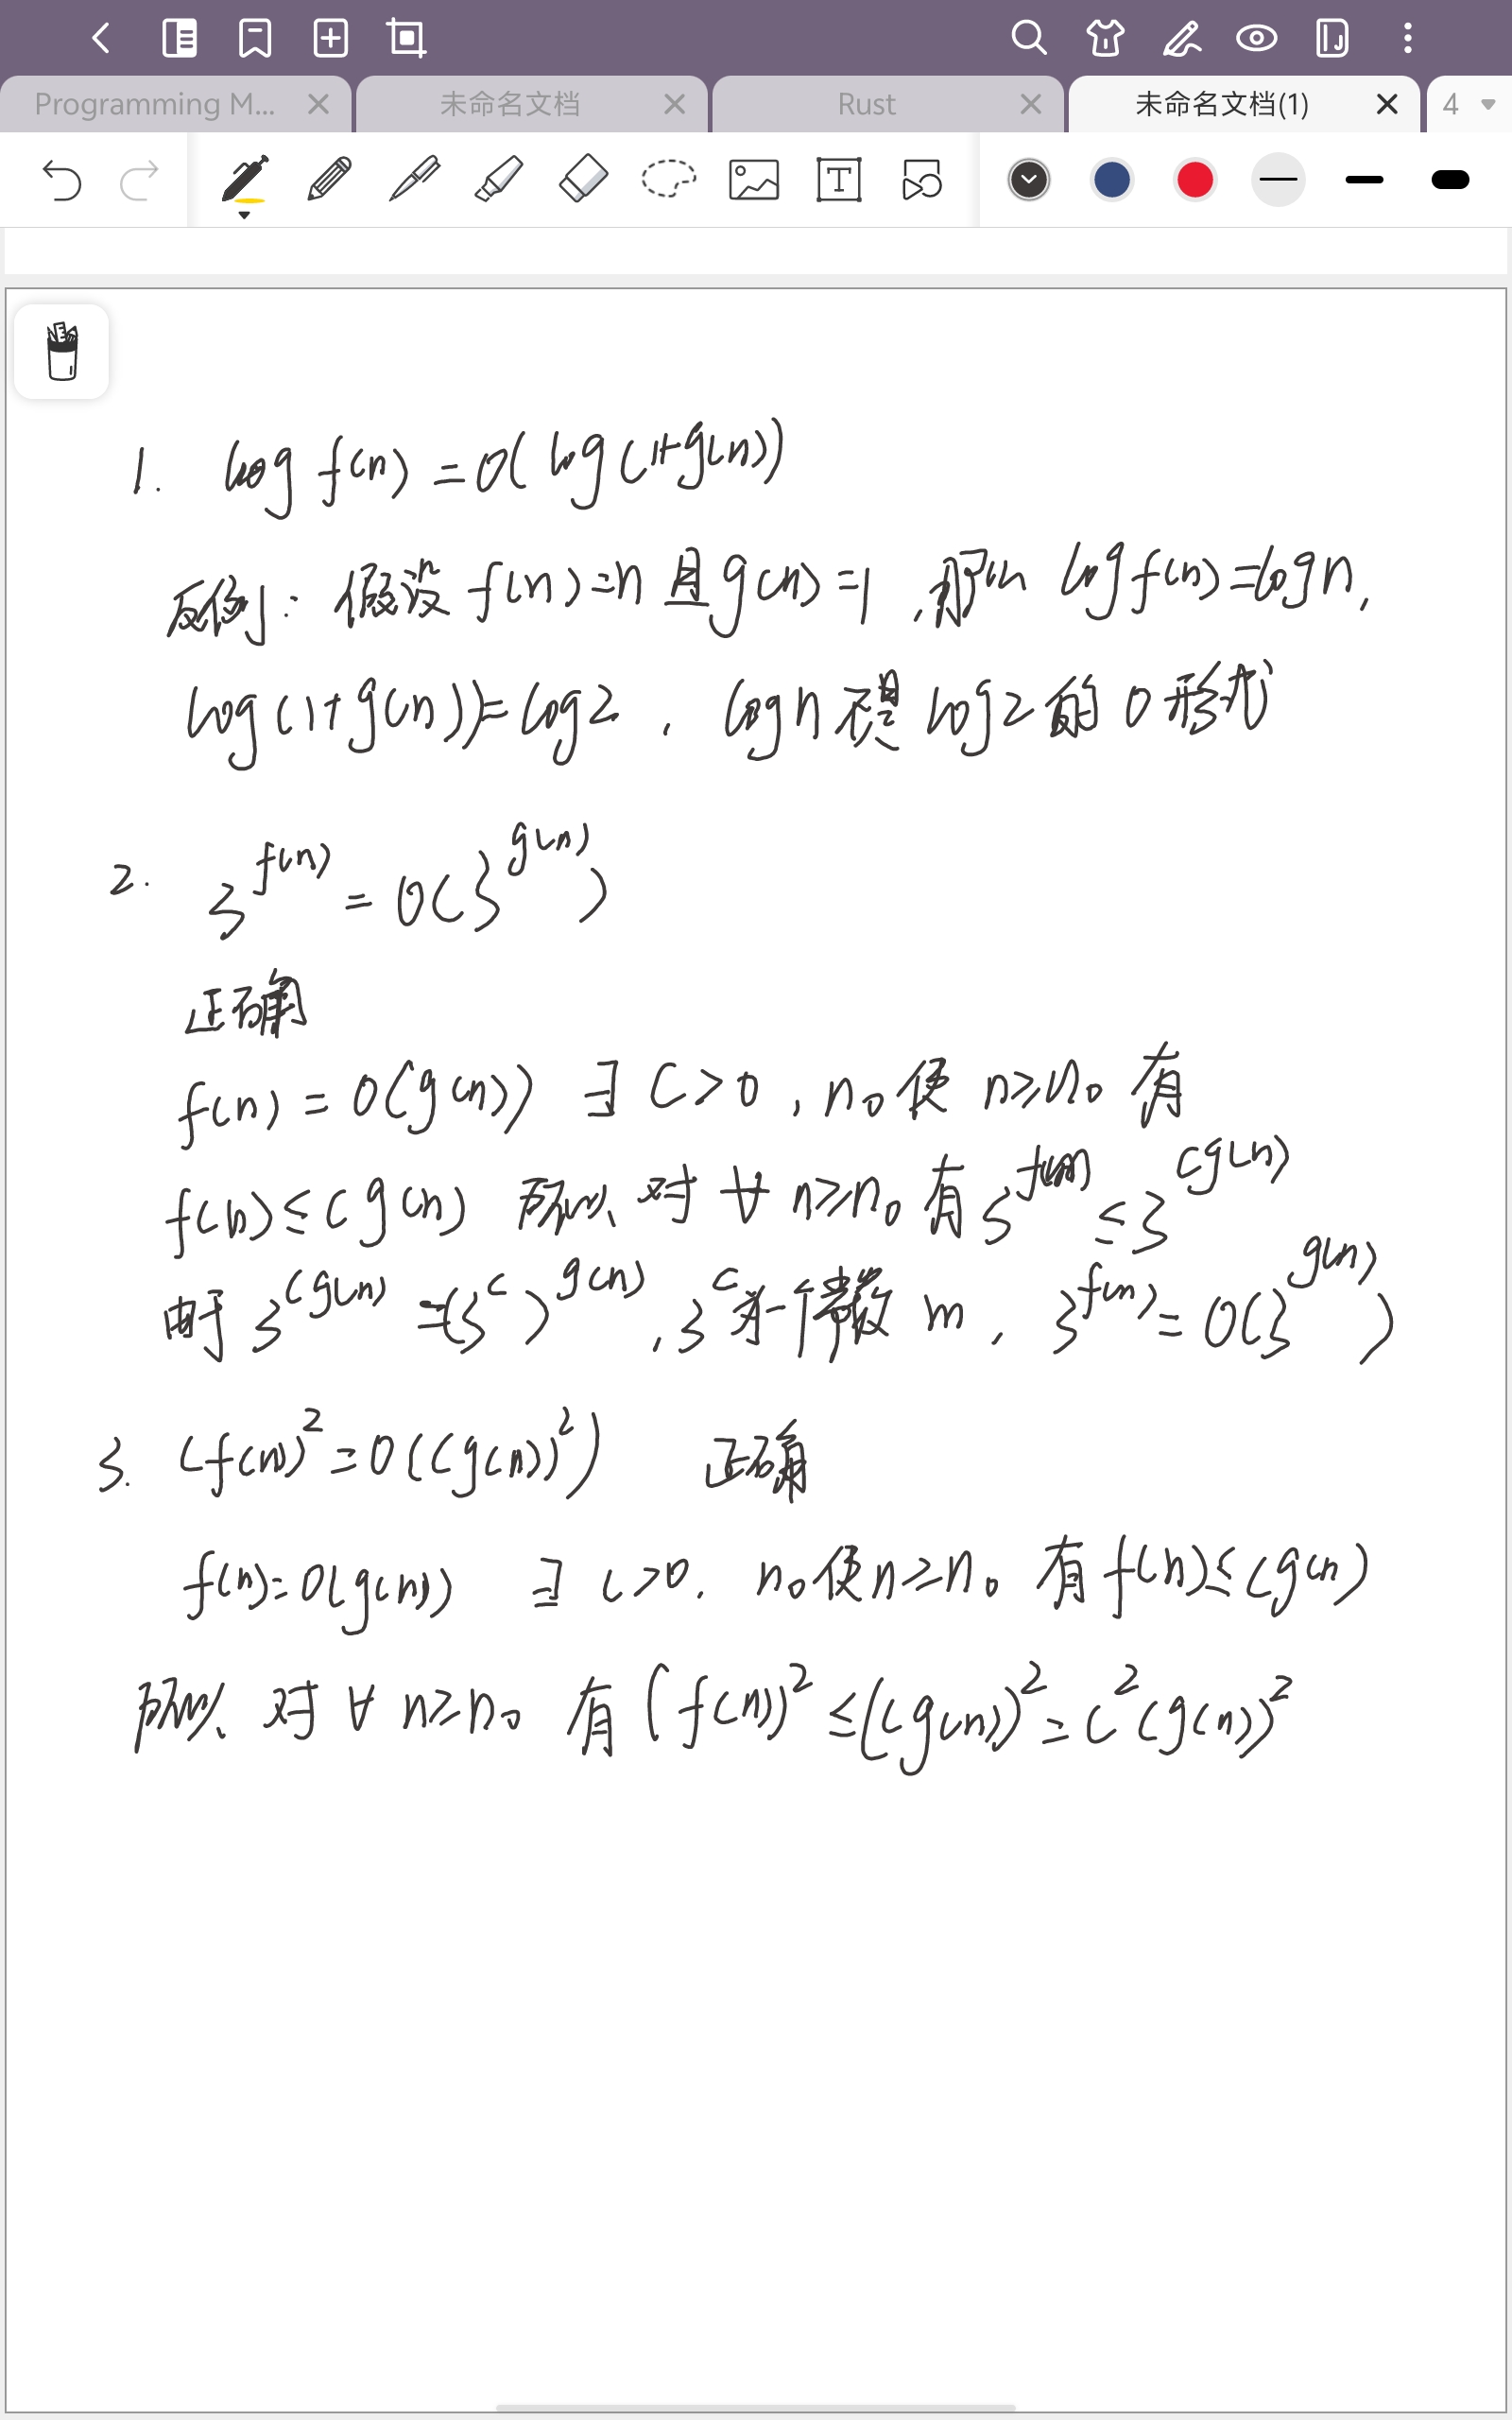 Programming M... 未命名文档 Rust 未命名文档(1) 4
1. log f(n) = O( log(1+g(n))
反例: 假设 f(n)=n 且 g(n)=1 ,那么 log f(n)=logn,
log(1+g(n))=log2 , logn不是 log2 的 O 形式
2. 3^f(n) = O(3^g(n))
正确
f(n) = O(g(n)) ∃ C>0 , n₀ 使 n≥n₀ 有
f(n)≤cg(n) 所以 对 ∀ n≥n₀ 有 3^f(n) ≤ 3^cg(n)
由于 3^cg(n) =(3^c)^g(n) , 3^c 为一个常数 m , 3^f(n) = O(3^g(n))
3. (f(n))²=O((g(n))²) 正确
f(n)=O(g(n)) ∃ c>0, n₀使n≥n₀ 有f(n)≤cg(n)
所以 对 ∀ n≥n₀ 有 (f(n))² ≤(cg(n))² = C²(g(n))²